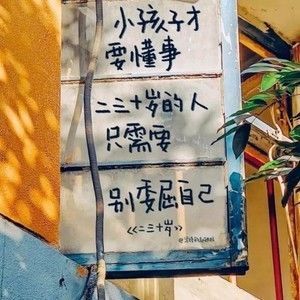 小孩子才
要懂事
二三十岁的人
只需要
别委屈自己
<<二三十岁>>